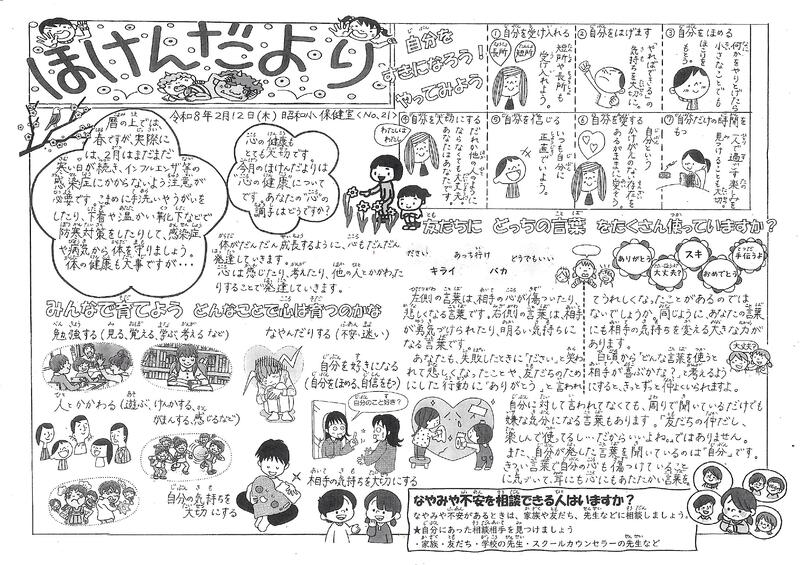 ほけんだより
令和8年2月12日(木) 昭和小 保健室〈No.21〉
暦の上では
春ですが、実際に
は、2月はまだまだ
寒い日が続き、インフルエンザ等の
感染症にかからないよう注意が
必要です。こまめに手洗いやうがいを
したり、下着や温かい靴下などで
防寒対策をしたりして、感染症
や病気から体を守りましょう。
体の健康も大事ですが・・・
心の健康も
とても大切です。
今月のほけんだよりは
「心の健康」について
です。あなたの“心”の
調子はどうですか?
体がだんだん成長するように、心もだんだん
発達していきます。
心は感じたり、考えたり、他の人とかかわた
りすることで発達していきます。
自分を
すきになろう!
やってみよう
①自分を受け入れる
長所
短所
短所や長所も
受け入れよう。
②自分をはげます
やればできる
気持ちを大切に。
③自分をほめる
何かをやりとげたら
小さなことでも
ほこりを
もとう。
④自分を大切にする
わたしはわたし
だれか他の人のように
ならなくても大丈夫。
あなたはあなたです。
⑤自分を信じる
いつも自分に
正直でいよう。
⑥自分を愛する
自分という
かけがえのない存在を
あるがままに愛そう。
⑦自分だけの時間を
もつ
一人で過ごす楽しみを
見つけることも大切。
友だちに どっちの言葉 をたくさん使っていますか?
ださい
あっち行け
どうでもいい
キライ
バカ
ありがとう
大丈夫?
スキ
おめでとう
手伝うよ
左側の言葉は、相手の心が傷ついたり、
悲しくなる言葉です。右側の言葉は、相手
が勇気づけられたり、明るい気持ちに
なる言葉です。
あなたも、失敗したときに「ださい」と笑わ
れて悲しくなったことや、友だちのため
にした行動に“ありがとう”と言われ
てうれしくなったことがあるのでは
ないでしょうか。同じように、あなたの言葉
にも相手の気持ちを変える大きな力が
あります。
日頃から“どんな言葉を使うと
相手が喜ぶかな?”と考えるよう
にすると、きっとずっと仲よくいられますよ。
大丈夫?
自分に対して言われてなくても、周りで聞いているだけでも
嫌な気分になる言葉もあります。“友だちの仲だし、
楽しんで使ってるし…だからいいよね。”ではありません。
また、自分が発した言葉を聞いているのは“自分”です。
きつい言葉で自分の心も傷つけている
に気づいて、耳にも心にもあたたかい言葉を。
みんなで育てよう どんなことで心は育つのかな
勉強する(見る、覚える、学ぶ、考えるなど)
なやんだりする(不安・迷い)
人とかかわる(遊ぶ、けんかする、
がまんする、感じるなど)
自分の気持ちを
大切にする
自分を好きになる
(自分をほめる、自信をもつ)
自分のこと好き?
相手の気持ちを大切にする
なやみや不安を相談できる人はいますか?
なやみや不安があるときは、家族や友だち、先生などに相談しましょう。
★自分にあった相談相手を見つけましょう
・家族・友だち・学校の先生・スクールカウンセラーの先生など